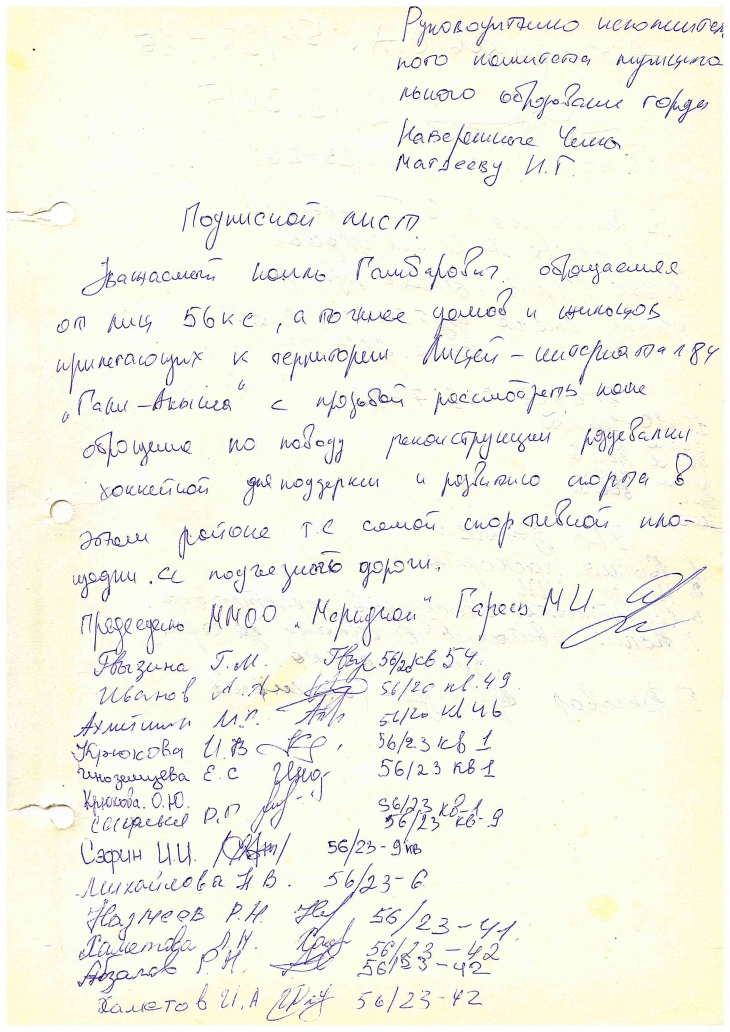 Руководителю исполнител
ного комитета муницепа
льного образование города
Набережные Челны
Магдееву И.Г.
Подписной лист
Уважаемый Наиль Гамбарович, обращаемся
от лиц 56 к с, а точнее домов и жильцов
прилегающих к территории Лицей-интерната №84
"Гали-Акыша" с прозьбой рассмотреть наше
обращение по поводу реконструкции раздевалки
хоккейной для поддержки и развитию спорта в
этом районе т.е самой спортивной пло-
щадки. и подъездной дороги.
Председатель ММОО "Меридиан" Гареев М.И.
Гвызина Г.М. 56/20 кв 54
Иванов А.А 56/20 кв. 49
Ахметшин М.Г. 56/20 кв 46
Крюкова И.В 56/23 кв 1
Иноземцева Е.С 56/23 кв 1
Крюкова. О.Ю. 56/23 кв-1
Р.П 56/23 кв-9
Сафин И.И. 56/23-9 кв
Михайлова Н В. 56/23-6
Назмеев Р.Н. 56/23-41.
Хаметова Л.Н. 56/23-42
Абзалов Р.Н. 56/23-42
Хаметов И.А 56/23-42